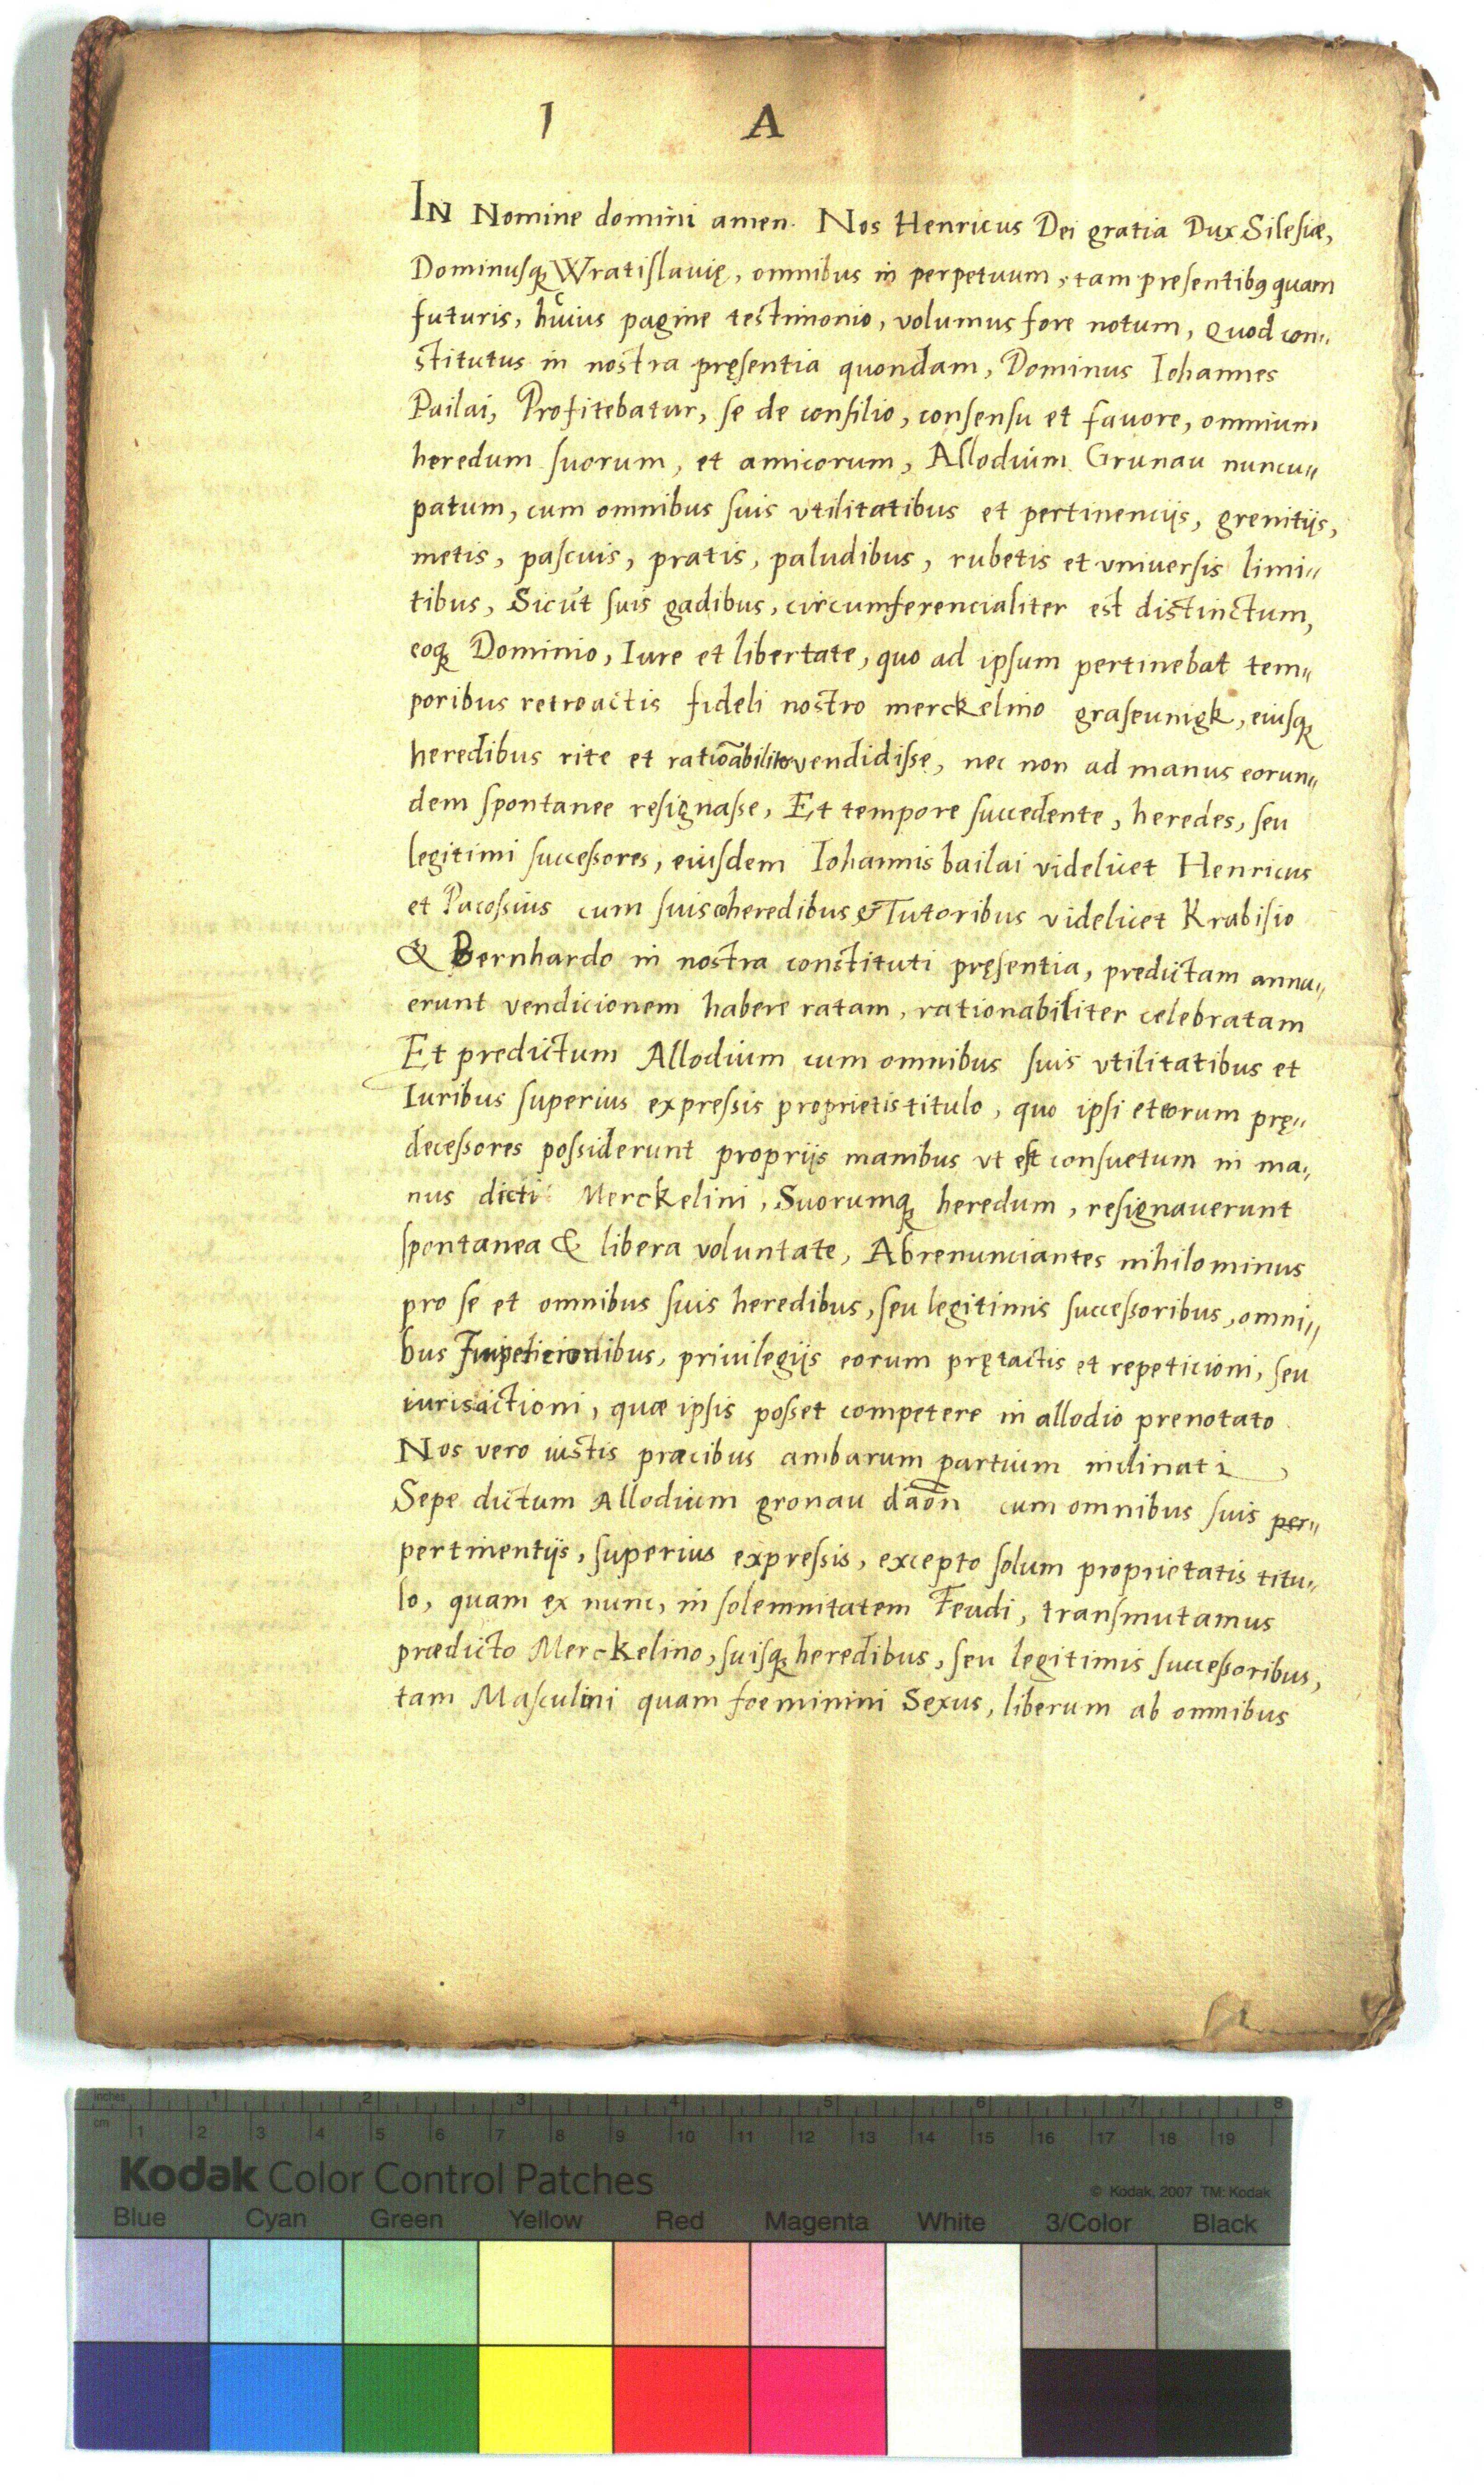 1 A
IN Nomine domini amen. Nos Henricus Dei gratia Dux Silesiæ,
Dominusq Wratislauię, omnibus in perpetuum, tam presentibꝰ quam
futuris, huius pagine testimonio, volumus fore notum, Quod con„
stitutus in nostra pręsentia quondam, Dominus Iohannes
Pailai, Profitebatur, se de consilio, consensu et fauore, omnium
heredum suorum, et amicorum, Allodium Grunau nuncu„
patum, cum omnibus suis vtilitatibus et pertinencijs, grenitijs,
metis, pascuis, pratis, paludibus, rubetis et vniuersis limi„
tibus, Sicut suis gadibus, circumferencialiter est distinctum,
eoq Dominio, Iure et libertate, quo ad ipsum pertinebat tem„
poribus retroactis fideli nostro merckelino graseunigk, eiusq
heredibus rite et ratioābiliter vendidisse, nec non ad manus eorun„
dem spontanee resignasse, Et tempore succedente, heredes, seu
legitimi successores, eiusdem Iohannis bailai videlicet Henricus
et Pacossius cum suis coheredibus & Tutoribus videlicet Krabisio
& Bernhardo in nostra constituti pręsentia, predictam annu„
erunt vendicionem habere ratam, rationabiliter celebratam
Et predictum Allodium cum omnibus suis vtilitatibus et
Iuribus superius expressis proprietis titulo, quo ipsi et eorum prę„
decessores possiderunt proprijs manibus vt est consuetum in ma„
nus dicti Merckelini, Suorumq heredum, resignauerunt
spontanea & libera voluntate, Abrenunciantes nihilominus
pro se et omnibus suis heredibus, seu legitimis successoribus, omni„
bus Impeticionibus, priuilegijs eorum prętactis et repeticioni, seu
iurisactioni, quæ ipsis posset competere in allodio prenotato
Nos vero iustis præcibus ambarum partium inclinati
Sepe dictum Allodium gronau dāōn cum omnibus suis per„
pertinentijs, superius expressis, excepto solum proprietatis titu„
lo, quam ex nunc, in solemnitatem Feudi, transmutamus
prædicto Merckelino, suisq heredibus, seu legitimis successoribus,
tam Masculini quam foeminini Sexus, liberum ab omnibus
inches 1 2 3 4 5 6 7 8
cm 1 2 3 4 5 6 7 8 9 10 11 12 13 14 15 16 17 18 19
Kodak Color Control Patches
© Kodak, 2007 TM: Kodak
Blue Cyan Green Yellow Red Magenta White 3/Color Black